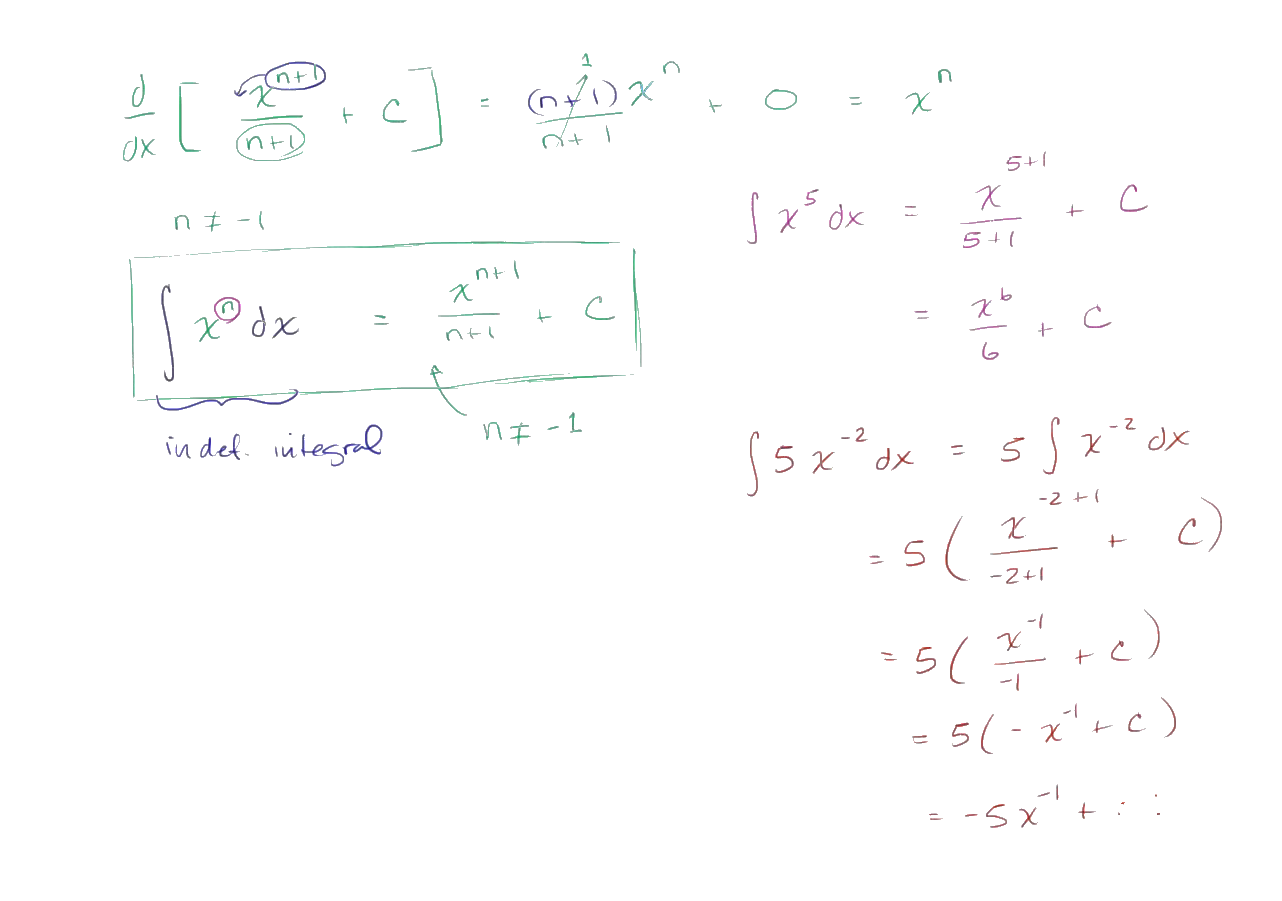 d/dx [ x^(n+1)/(n+1) + C ] = (n+1)x^n/(n+1) + 0 = x^n
1
n ≠ -1
∫ x^n dx = x^(n+1)/(n+1) + C
n ≠ -1
indef. integral
∫ x^5 dx = x^(5+1)/(5+1) + C
= x^6/6 + C
∫ 5 x^-2 dx = 5 ∫ x^-2 dx
= 5 ( x^(-2+1)/(-2+1) + C )
= 5 ( x^-1/-1 + C )
= 5 ( - x^-1 + C )
= -5x^-1 +